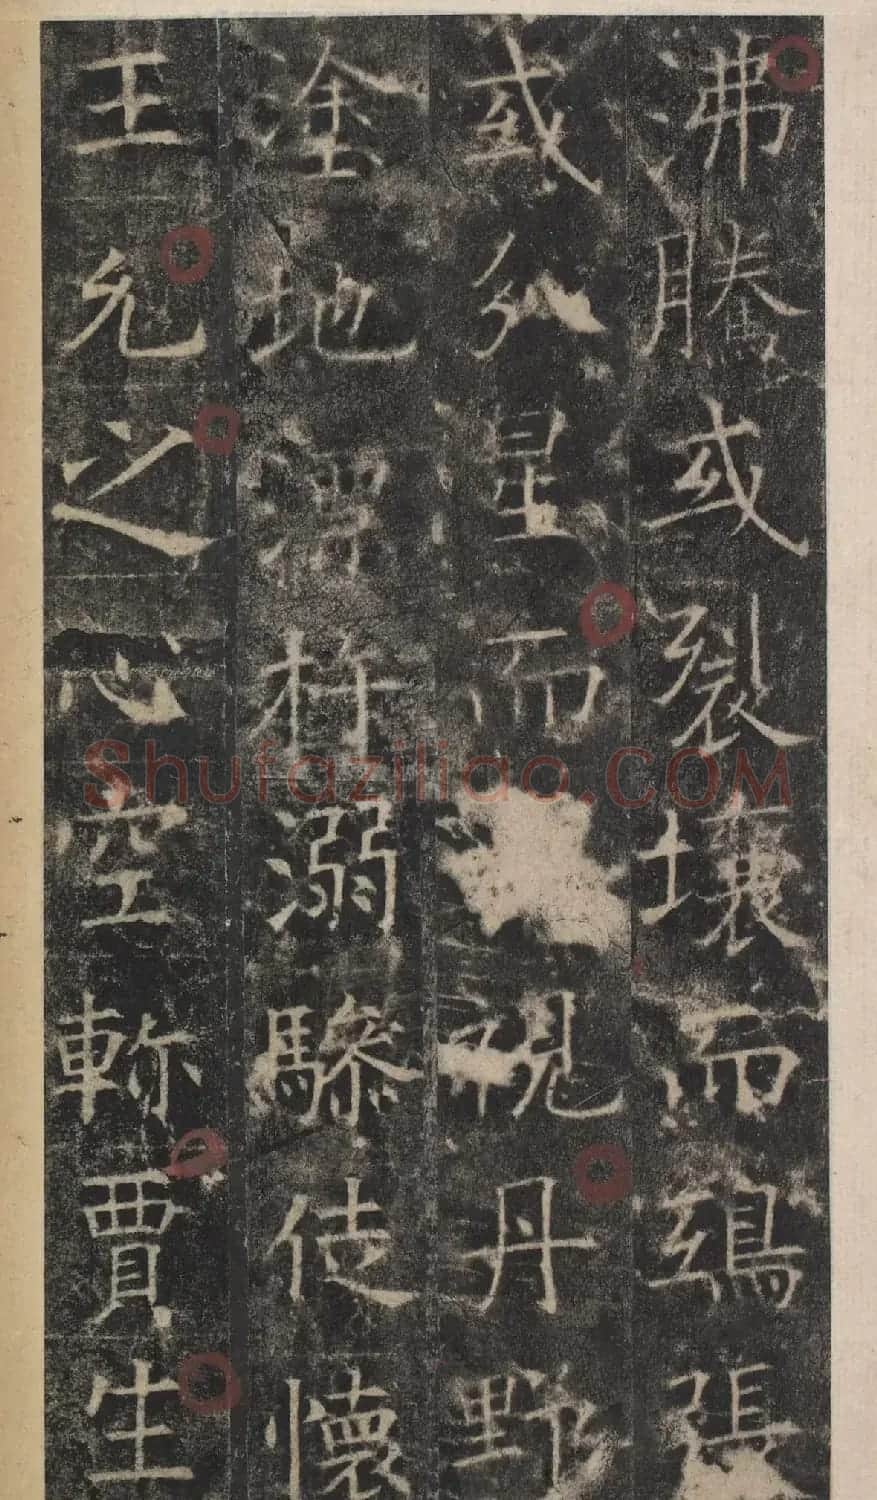 沸騰或裂壤而鴟張
或分星而視丹野
塗地杵溺驂徒懷
王允之心空軫賈生
Shufaziliao.COM